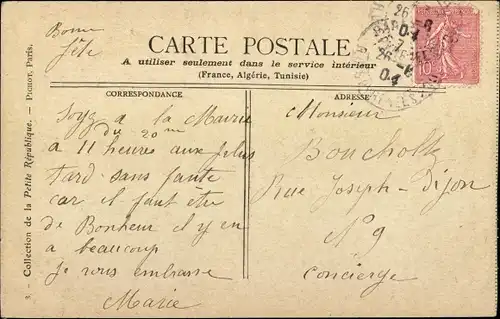 Bonne
fête
CARTE POSTALE
A utiliser seulement dans le service intérieur
(France, Algérie, Tunisie)
CORRESPONDANCE
Soyez a la Mairie
du 20me
a 11 heures aux plus
tard sans faute
car il faut être
de Bonheur il y en
a beaucoup
je vous embrasse
Marie
ADRESSE
Monsieur
Boucholtz
Rue Joseph-Dijon
No 9
Concierge
3. - Collection de la Petite République. - Pichot, Paris.
10
26 -6
04